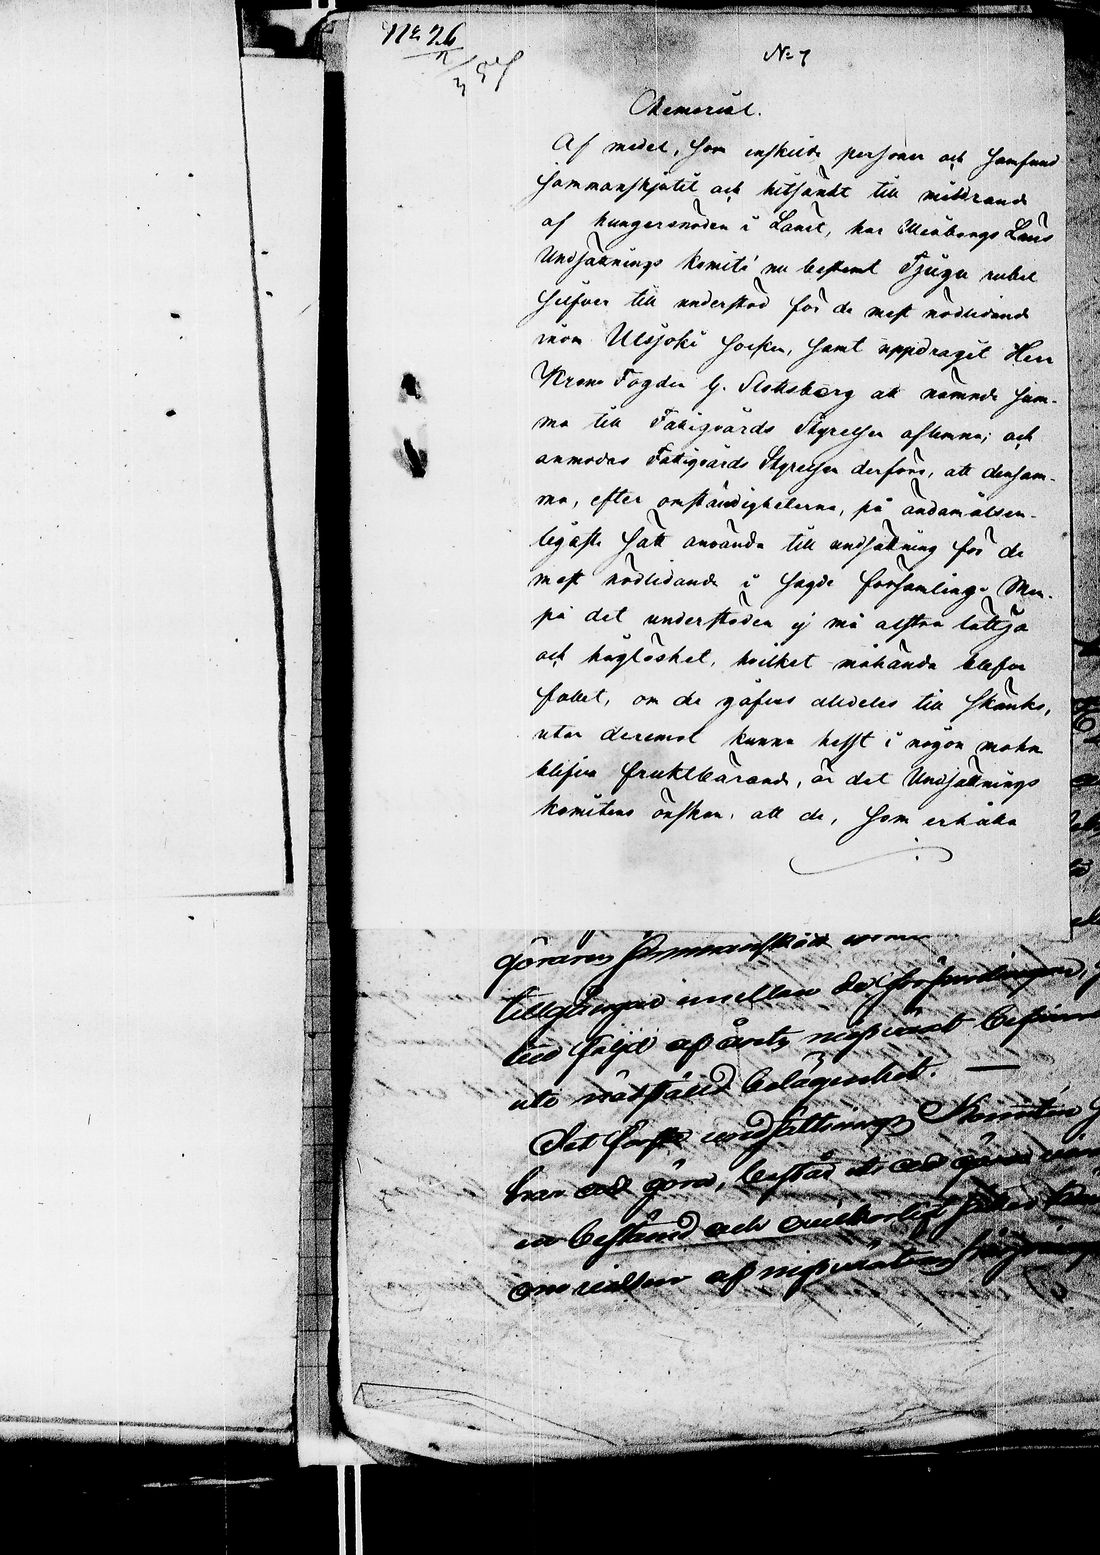 No 26
2/3 57
No 7
Memorial.
Af medel, som enskilde personer och samfund
sammanskjutit och hitsändt till mildrand
af hungersnöden i Länet, har Uleåborgs Läns
Undsättnings komité nu bestemt Tjugu rubel
silfver till understöd för de mest nödlidande
inom Utsjoki socken, samt uppdragit Herr
Krono Fogden G. Stoksberg att nämnde sum-
ma till Fattigvårds Styrelsen aflemna; och
anmodas Fattigvårds Styrelsen derföre, att densam-
ma, efter omständigheterna, på ändamålsen-
ligaste sätt använda till undsättning för de
mest nödlidande i sagde församling. Men
på det understöden ej må alstra lättja
och håglöshet, hvilket måhända blefve
fallet, om de gåfves alldeles till skänks,
utan deremot kunna helst i någon mohn
blifva fruktbärande, är det Undsättnings
komiténs önskan, att de, som erhålla
sammanskott
tillgångar emellan de församlingar,
till följd af årets missväxt befinna
uti nödstäld belägenhet. —
Det första undsättnings Komitén
har att göra, består i att göra
en bestämd och
af missväxten